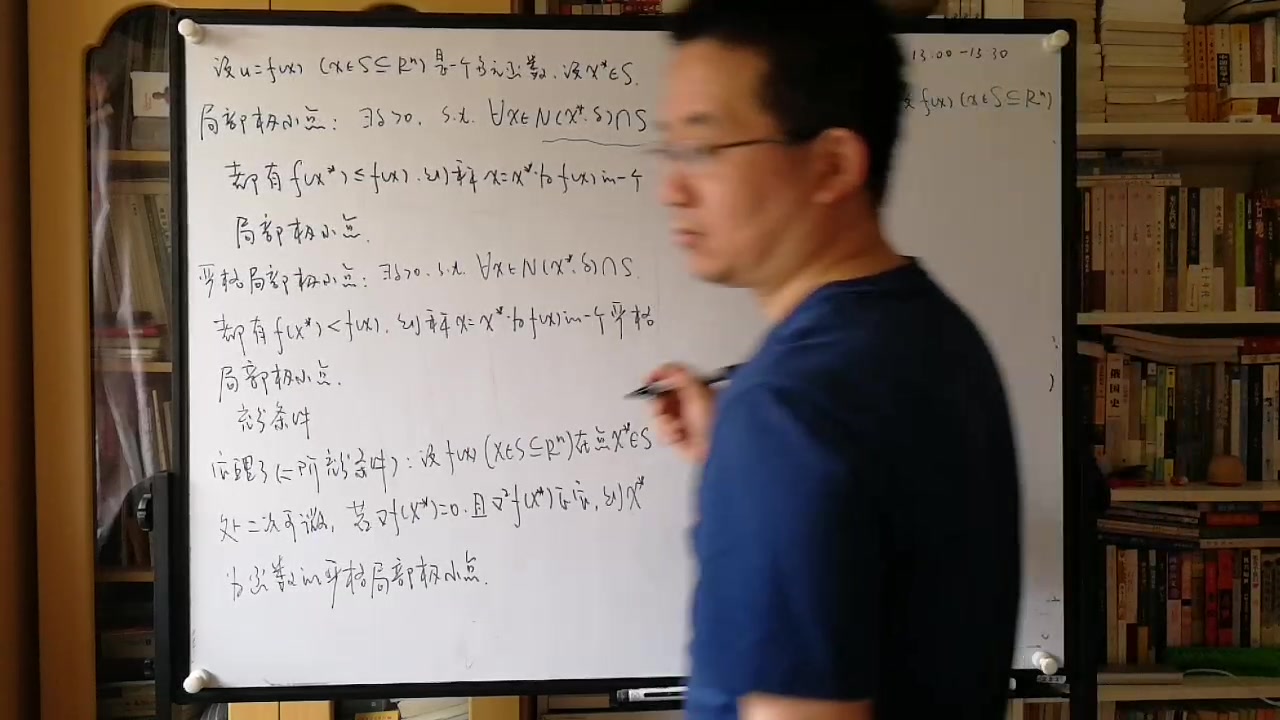 设u=f(x) (x∈S⊆Rⁿ)是一个多元函数.设x*∈S.
局部极小点: ∃δ>0. s.t. ∀x∈N(x*.δ)∩S
都有f(x*)≤f(x).则称x=x*为f(x)的一个
局部极小点.
严格局部极小点: ∃δ>0. s.t. ∀x∈N(x*.δ)∩S.
都有f(x*)<f(x).则称x=x*为f(x)的一个严格
局部极小点.
充分条件
定理3(二阶充分条件):设f(x)(x∈S⊆Rⁿ)在点x*∈S
处二次可微,若∇f(x*)=0.且∇²f(x*)正定,则x*
为函数的严格局部极小点.
13:00-13:30
f(x)(x∈S⊆Rⁿ)
俄国史